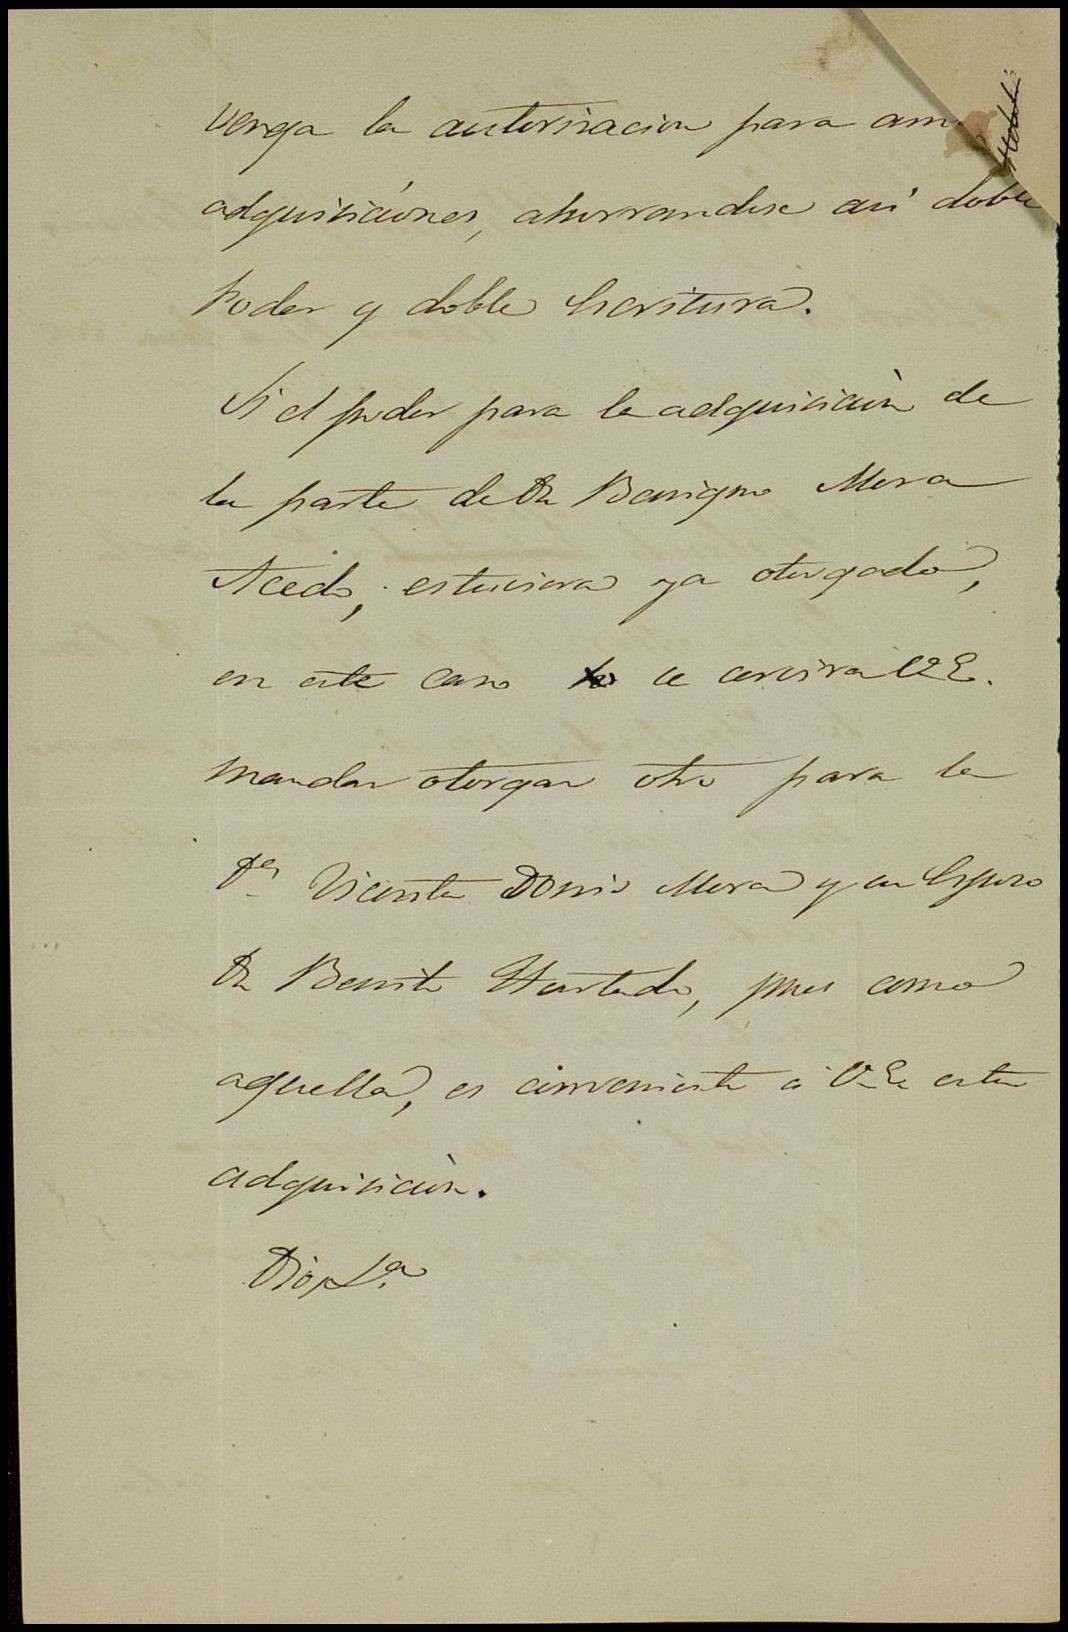 venga la autorizacion para am
adquisiciónes, ahorrandose asi doble
Poder y doble Escritura.
Si el poder para la adquisiciòn de
la parte de Dn Benigno Mera
Acedo, estuviera ya otorgado,
en este caso se servira V. E.
mandar otorgar otro para la
Da Vicenta Donis Mera y su Esposo
Dn Benito Hurtado, pues como
aquella, es conveniente á V. E. esta
adquisiciòn.
Dios